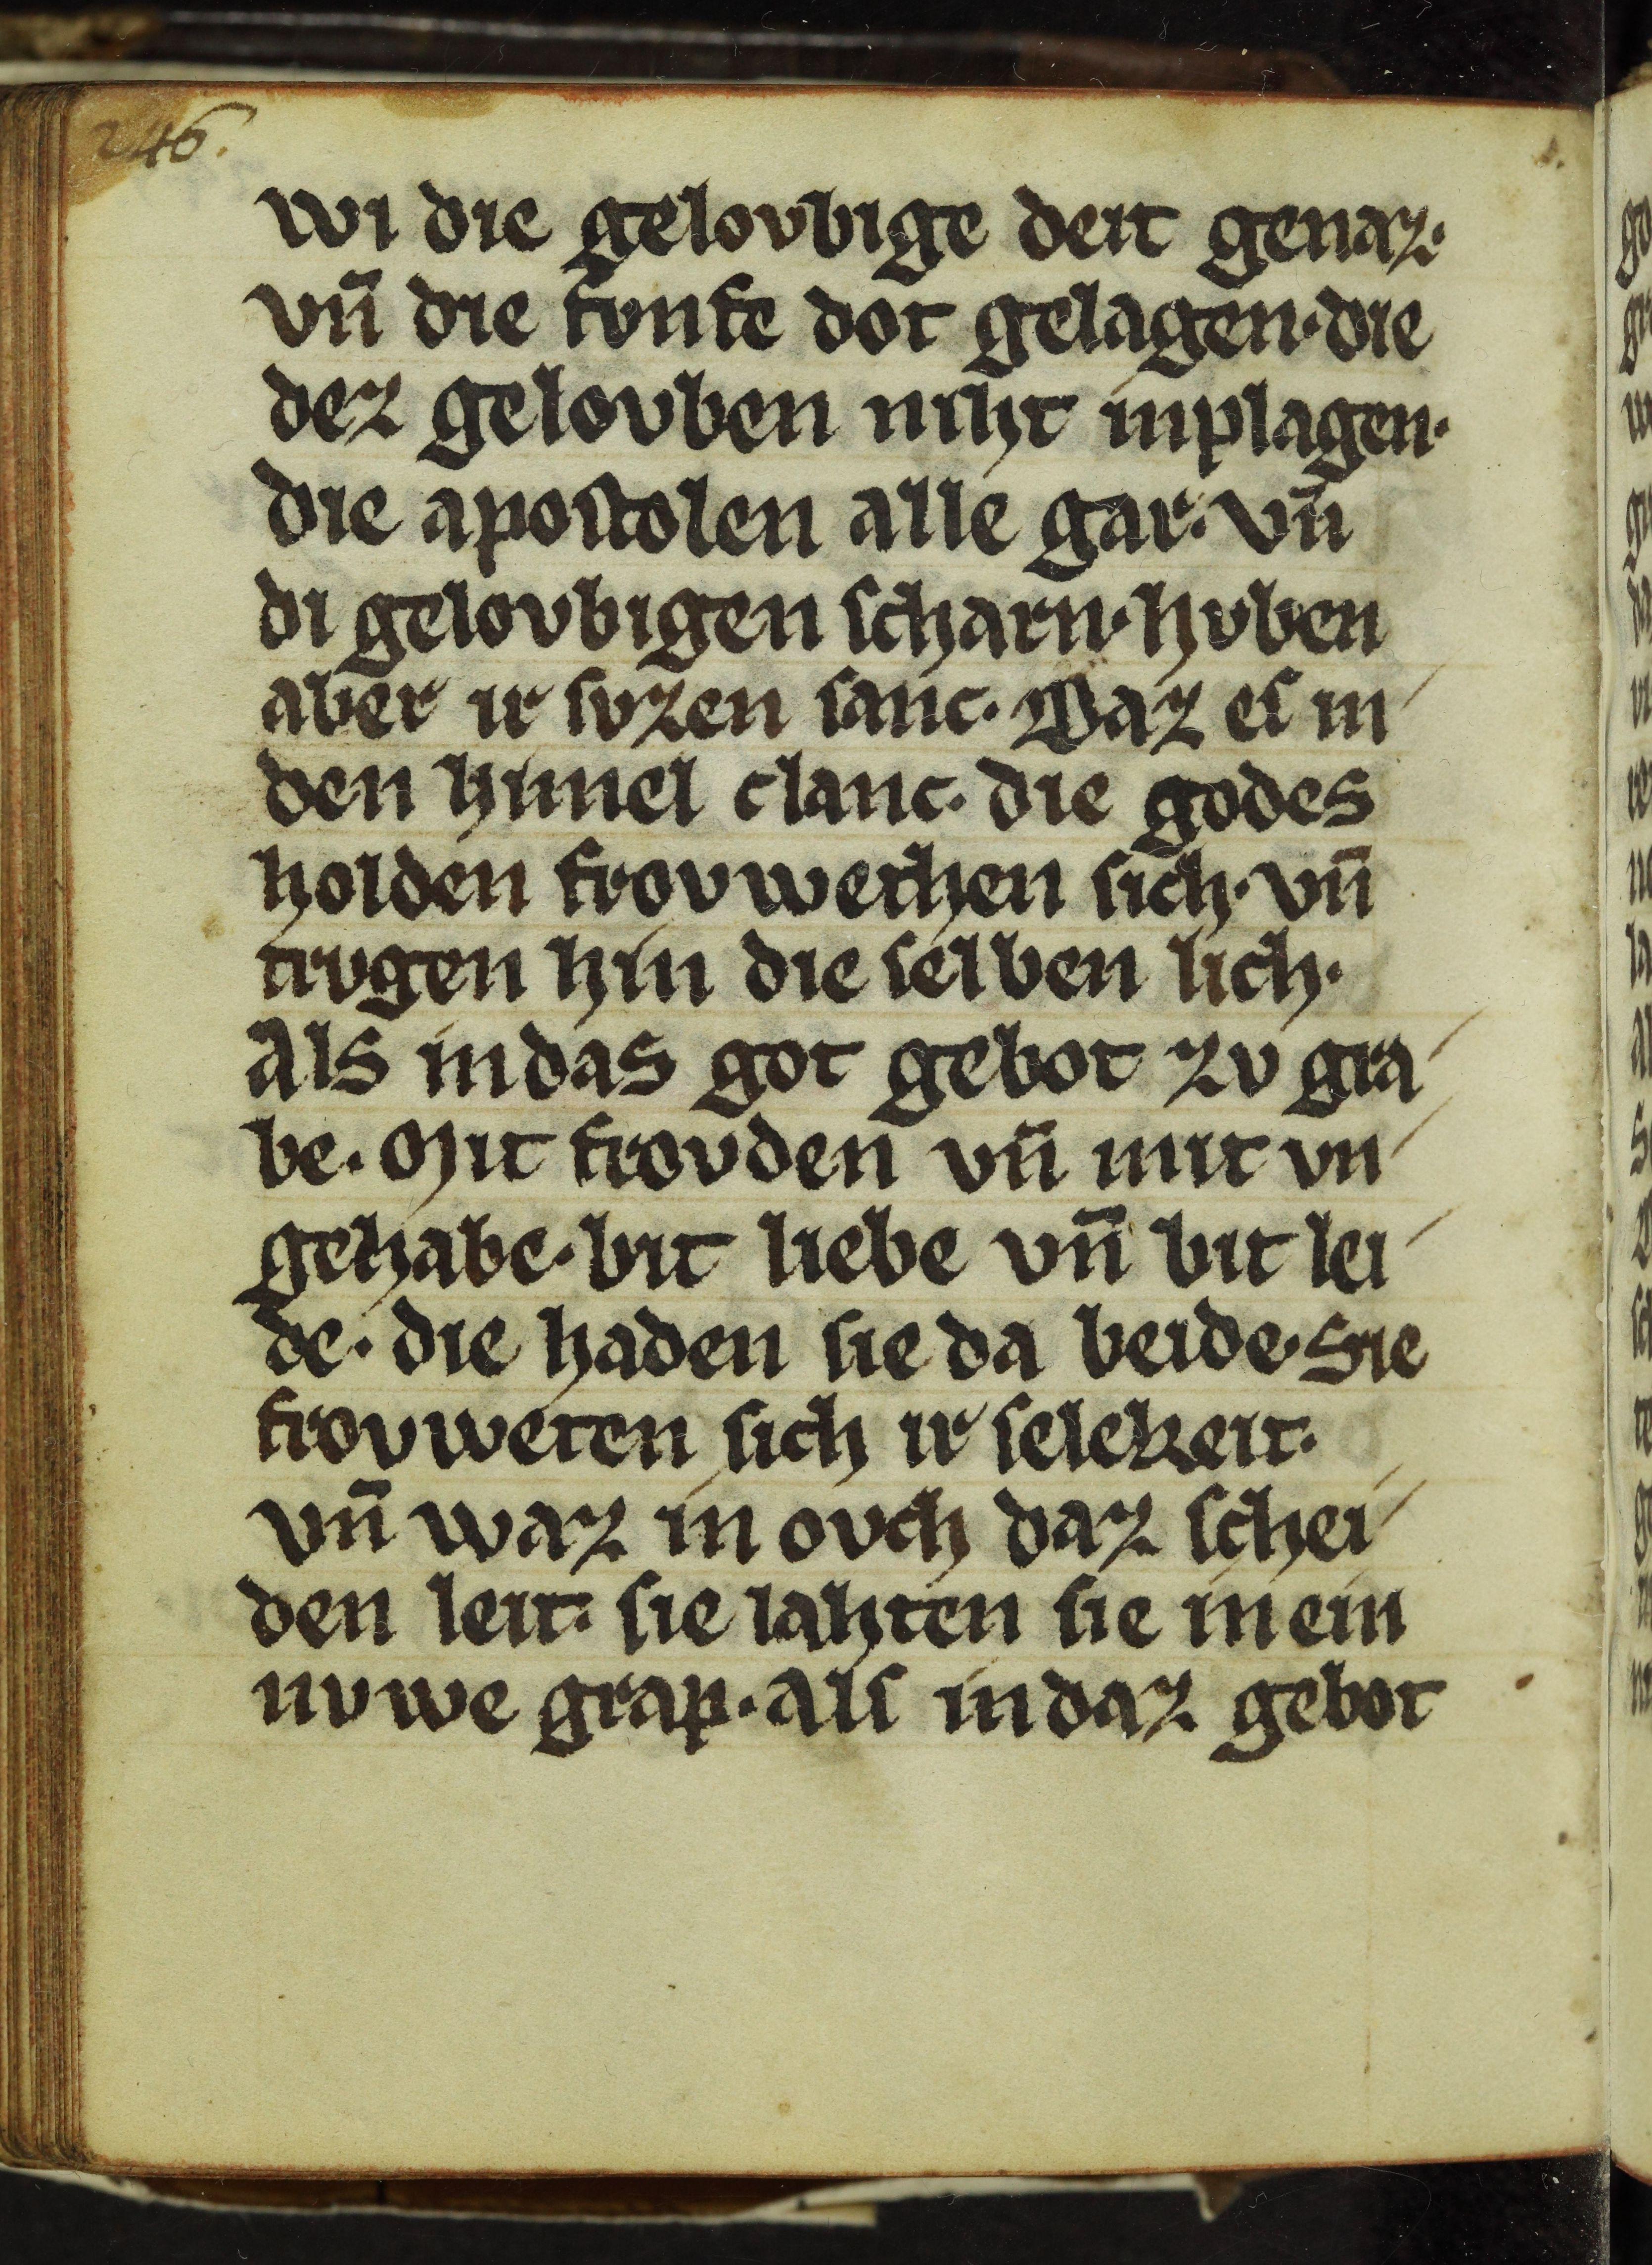 246.
wi die gelovbige deit genaz·
vñ die fvnfe dot gelagen·die
dez gelovben niht inplagen·
die apostolen alle gar· vñ
di gelovbigen scharn·hvben
aber ir svzen sanc· Daz es in
den himel clanc· die godes
holden frovwethen sich· vñ
trvgen hin die selben lich·
Als in das got gebot zv gra
be· Mit frovden vñ mit vn
gehabe· bit liebe vñ bit lei
de· die haden sie da beide· Sie
frovweten sich ir selekeit·
vñ waz in ovch daz schei
den leit· sie lahten sie in ein
nvwe grap· Als in daz gebot